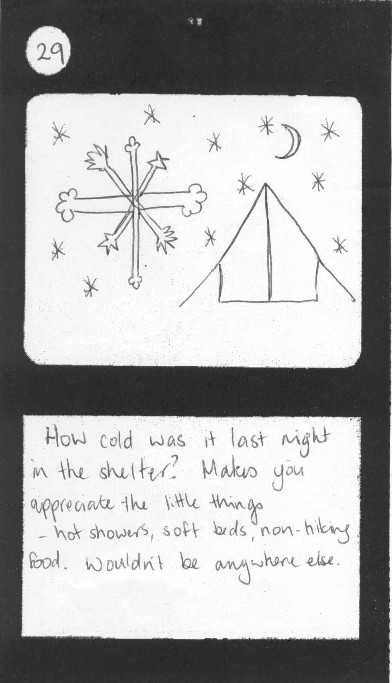 29
How cold was it last night
in the shelter? Makes you
appreciate the little things
- hot showers, soft beds, non-hiking
food. Wouldn't be anywhere else.